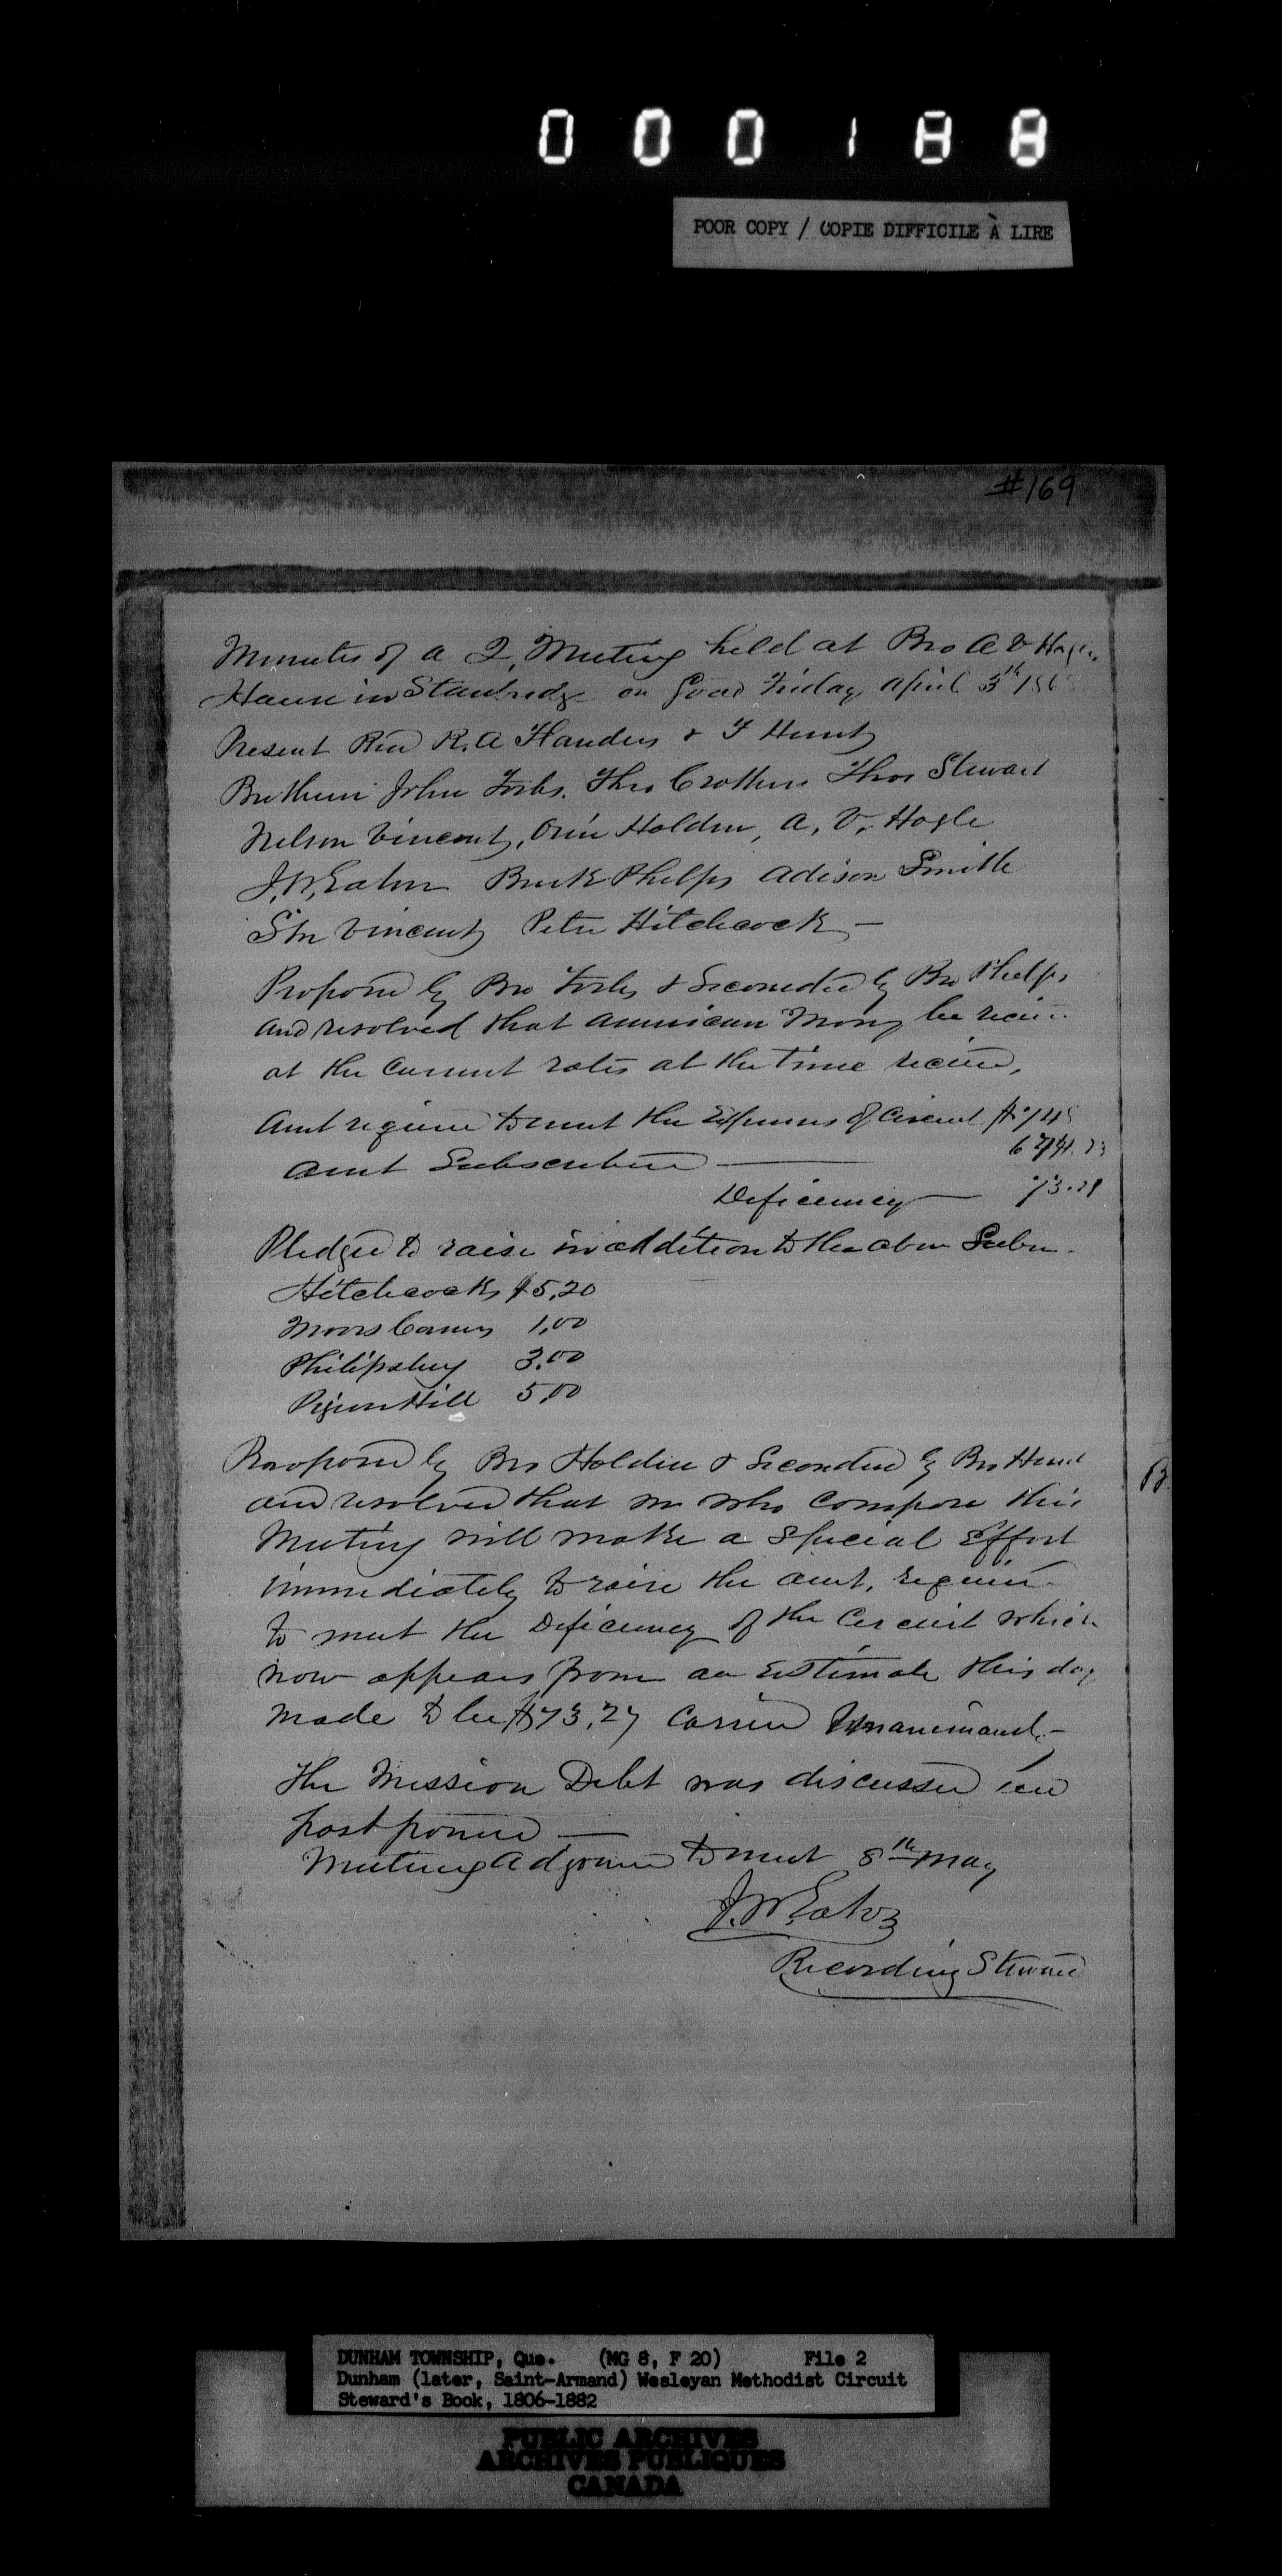 000188
POOR COPY / COPIE DIFFICILE À LIRE
#169
Minutes of a Q, Meeting held at Bro A V Hogle
House in Stanbridge on Good Friday April 3th 186
Present Rev R. A Flanders & F Hunt
Brethren John Forbs. Thos Crothers Thos Stewart
Nelson Vincent, Orin Holden, A. V. Hogle
J. W. Eaton Buck Phelps Adison Smith
Stn Vincent Peter Hitchcock —
Proposed by Bro Forbs & Seconded by Bro Phelps
and resolved that American Mony be
at the Current rates at the time
Amt required to meet the Expenses of Circuit $ 748
Amt Subscribed — 674.73
Deficiency — 73.27
Pledged to raise in addition to the above Subn.
Hitchcocks $5,20
Moors Corners 1,00
Philipsburg 3.00
Pigeon Hill 5,00
Proposed by Bro Holden & Seconded by Bro Hunt
and resolved that we who Compose this
Meeting will make a Special Effort
immediately to raise the amt. required
to meet the Deficiency of the Circuit which
now appears from an Estimate this day
made to be $73,27 Carried Unanimously
the Mission Debt was discussed and
postponed —
Meeting Adjourned to meet 8th May
J. W. Eaton
Recording Steward
B
DUNHAM TOWNSHIP, Que. (MG 8, F 20) File 2
Dunham (later, Saint-Armand) Wesleyan Methodist Circuit
Steward's Book, 1806-1882
PUBLIC ARCHIVES
ARCHIVES PUBLIQUES
CANADA